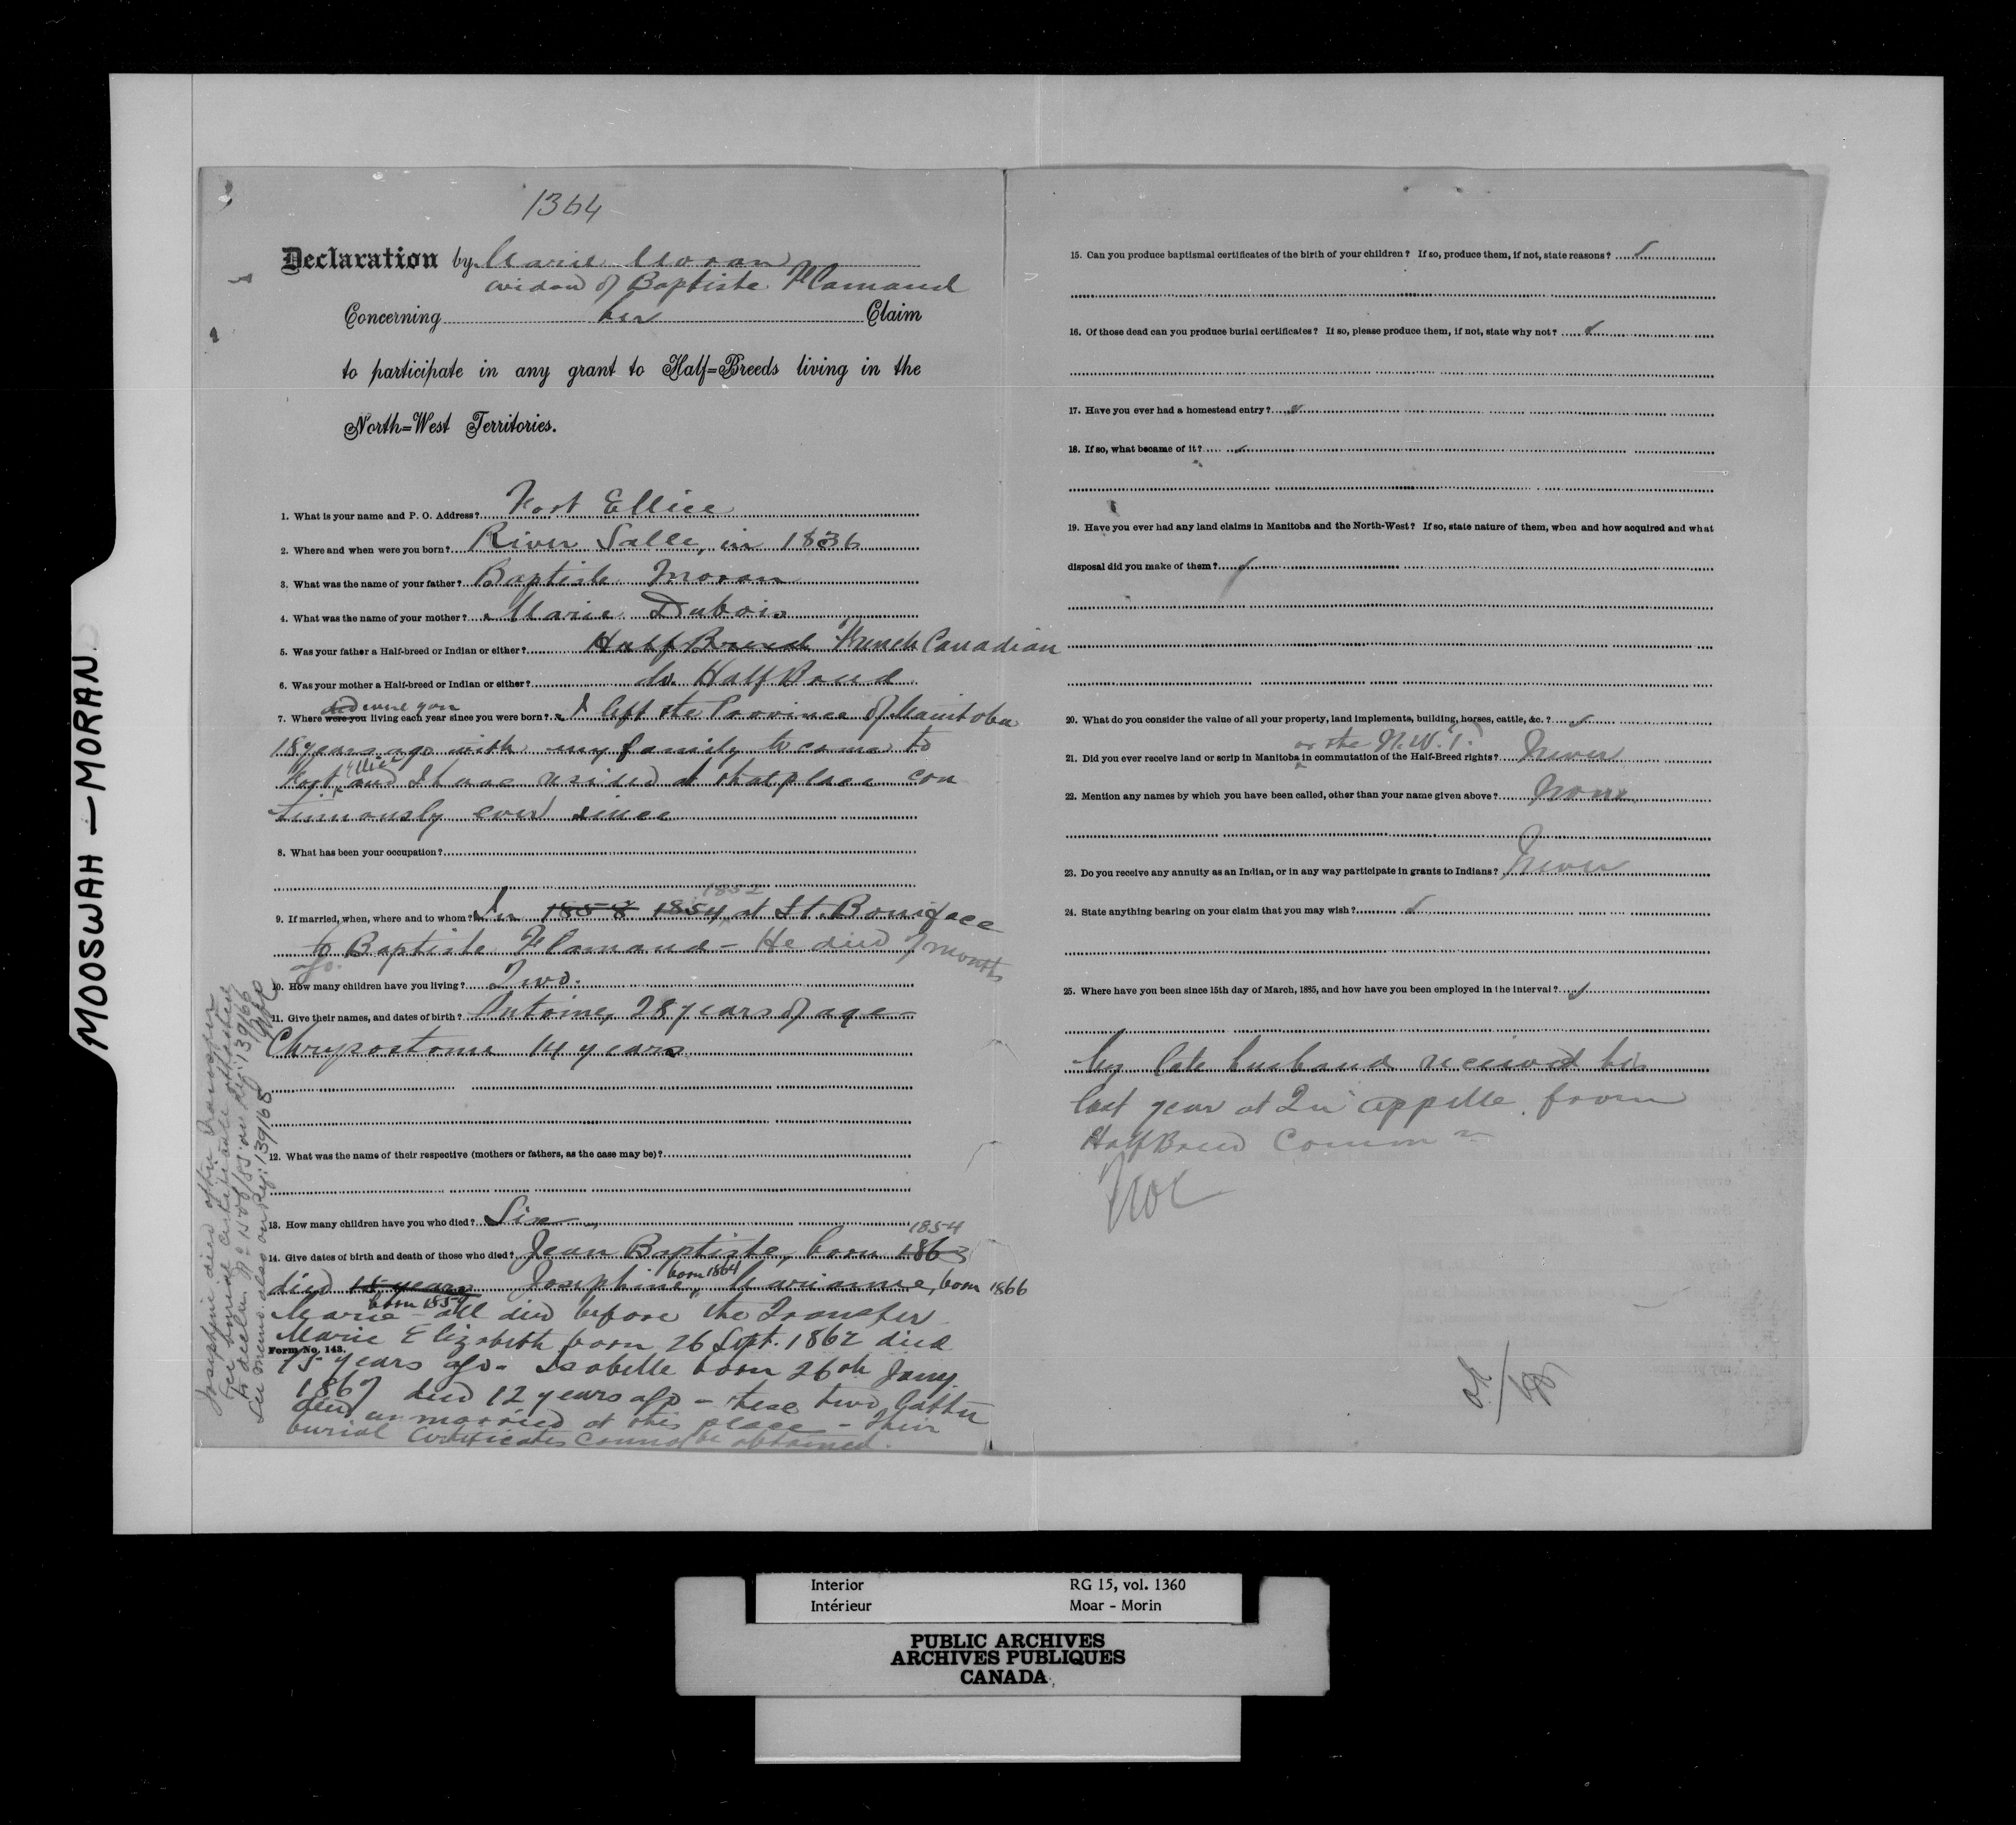 MOOSWAH — MORAN
1364
Declaration by Marie Moran
widow of Baptiste Flamand
Concerning her Claim
to participate in any grant to Half=Breeds living in the
North=West Territories.
1. What is your name and P. O. Address? Fort Ellice
2. Where and when were you born? River Salle, in 1836
3. What was the name of your father? Baptiste Moran
4. What was the name of your mother? Marie Dubois
5. Was your father a Half-breed or Indian or either? Half Breed French Canadian
6. Was your mother a Half-breed or Indian or either? do. Half Breed
did were you
7. Where were you living each year since you were born? I left the Province of Manitoba
18 years ago with my family to come to
Fort Ellice and I have resided at that place con
tinuously ever since
8. What has been your occupation?
1852
9. If married, when, where and to whom? In 1858 1854, at St. Boniface
to Baptiste Flamand - He died 7 months
ago.
10. How many children have you living? Two.
11. Give their names, and dates of birth? Antoine, 28 years of age -
Chrysostome 14 years
12. What was the name of their respective (mothers or fathers, as the case may be)?
13. How many children have you who died? Six
1854
14. Give dates of birth and death of those who died? Jean Baptiste, born 1863
died 15 years Josephine, born 1864 Marianne, born 1866
Marie born 1857 all died before the Transfer
Marie Elizabeth born 26 Sept. 1862 died
Form No. 143.
15 years ago - Isabelle born 26th Jany.
1867 died 12 years ago - these two latter
died unmarried at this place - Their
burial certificates cannot be obtained.
Josephine died after Transfer
See burial certificate attached
to declon. No 1508/85 on Ref: 139166
See memo. also on Ref: 139165
15. Can you produce baptismal certificates of the birth of your children? If so, produce them, if not, state reasons?
16. Of those dead can you produce burial certificates? If so, please produce them, if not, state why not?
17. Have you ever had a homestead entry?
18. If so, what became of it?
19. Have you ever had any land claims in Manitoba and the North-West? If so, state nature of them, when and how acquired and what
disposal did you make of them?
20. What do you consider the value of all your property, land implements, building, horses, cattle, &c.?
or the N.W.T.
21. Did you ever receive land or scrip in Manitoba in commutation of the Half-Breed rights? Never
22. Mention any names by which you have been called, other than your name given above? None
23. Do you receive any annuity as an Indian, or in any way participate in grants to Indians? Never
24. State anything bearing on your claim that you may wish?
25. Where have you been since 15th day of March, 1885, and how have you been employed in the interval?
My late husband received his
last year at Qu'appelle from
Half Breed Commn
Interior RG 15, vol. 1360
Intérieur Moar - Morin
PUBLIC ARCHIVES
ARCHIVES PUBLIQUES
CANADA